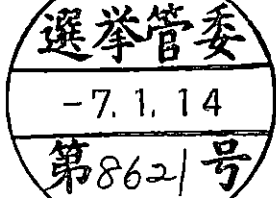 選挙管委
-7.1.14
第8621号